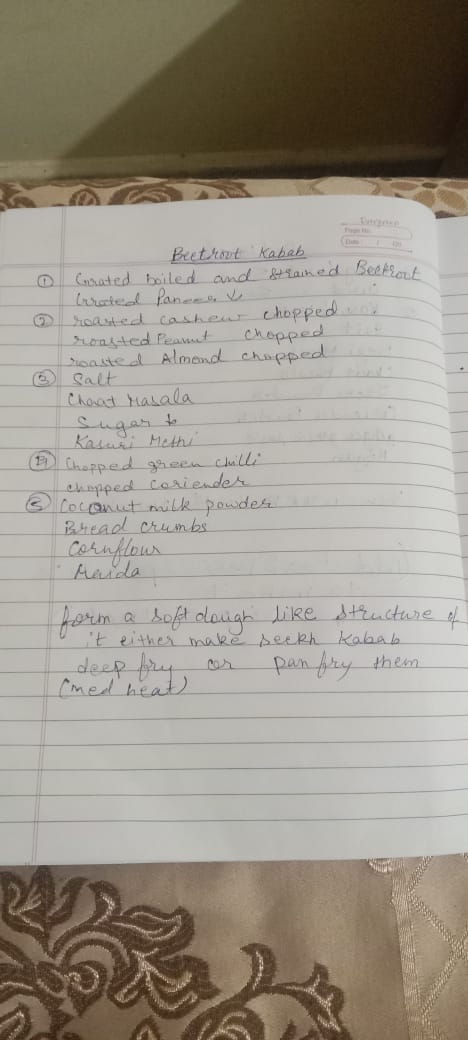 Evergreen
Page No.
Date / /20
Beetroot Kabab
① Grated boiled and strained Beetroot
Grated Paneer
② roasted cashew chopped
roasted Peanut chopped
roasted Almond chopped
③ Salt
Chaat Masala
Sugar
Kasuri Methi
④ Chopped green chilli
chopped coriender
⑤ Coconut milk powder
Bread crumbs
Cornflour
Maida
form a soft dough like structure of
it either make seekh kabab
deep fry or pan fry them
(med heat)